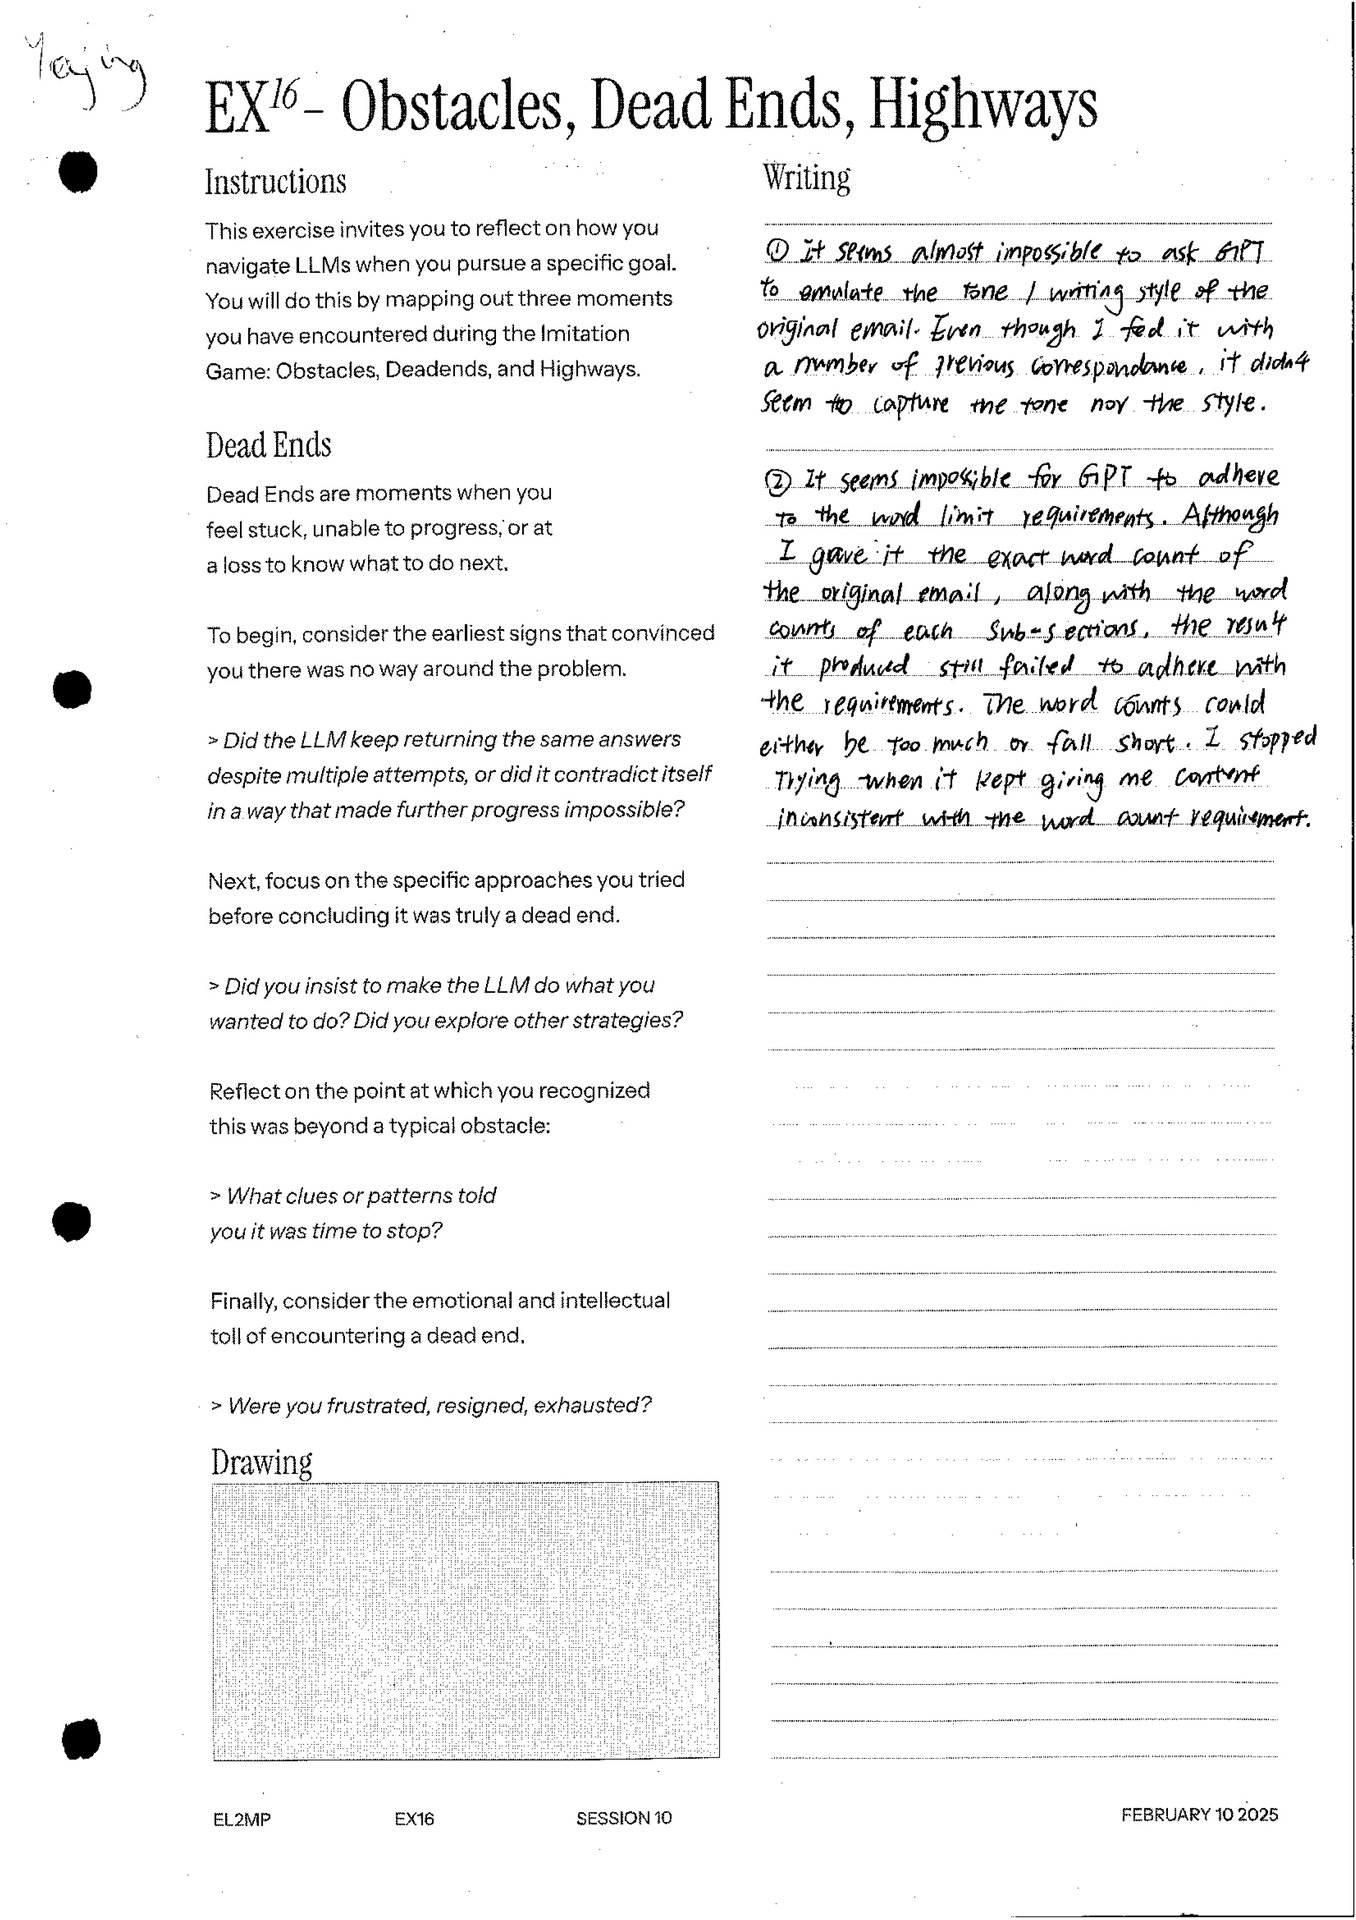 Yajing
EX16 – Obstacles, Dead Ends, Highways
Instructions
This exercise invites you to reflect on how you
navigate LLMs when you pursue a specific goal.
You will do this by mapping out three moments
you have encountered during the Imitation
Game: Obstacles, Deadends, and Highways.
Dead Ends
Dead Ends are moments when you
feel stuck, unable to progress, or at
a loss to know what to do next.
To begin, consider the earliest signs that convinced
you there was no way around the problem.
> Did the LLM keep returning the same answers
despite multiple attempts, or did it contradict itself
in a way that made further progress impossible?
Next, focus on the specific approaches you tried
before concluding it was truly a dead end.
> Did you insist to make the LLM do what you
wanted to do? Did you explore other strategies?
Reflect on the point at which you recognized
this was beyond a typical obstacle:
> What clues or patterns told
you it was time to stop?
Finally, consider the emotional and intellectual
toll of encountering a dead end.
> Were you frustrated, resigned, exhausted?
Drawing
Writing
① It seems almost impossible to ask GPT
to emulate the tone / writing style of the
original email. Even though I fed it with
a number of previous correspondance, it didn't
seem to capture the tone nor the style.
② It seems impossible for GPT to adhere
to the word limit requirements. Although
I gave it the exact word count of
the original email, along with the word
counts of each sub-sections, the result
it produced still failed to adhere with
the requirements. The word counts could
either be too much or fall short. I stopped
Trying when it kept giving me content
inconsistent with the word count requirement.
EL2MP
EX16
SESSION 10
FEBRUARY 10 2025